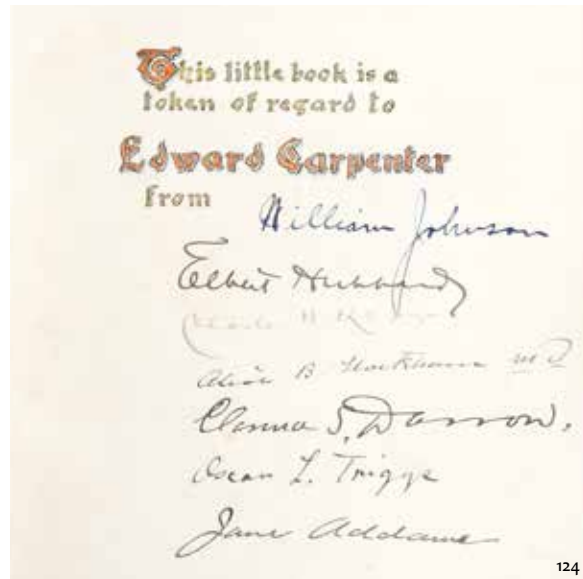 This little book is a
token of regard to
Edward Carpenter
from
William Johnson
Elbert Hubbard
Alice B Stockham MD
Clarence S. Darrow.
Oscar L. Triggs
Jane Addams
124